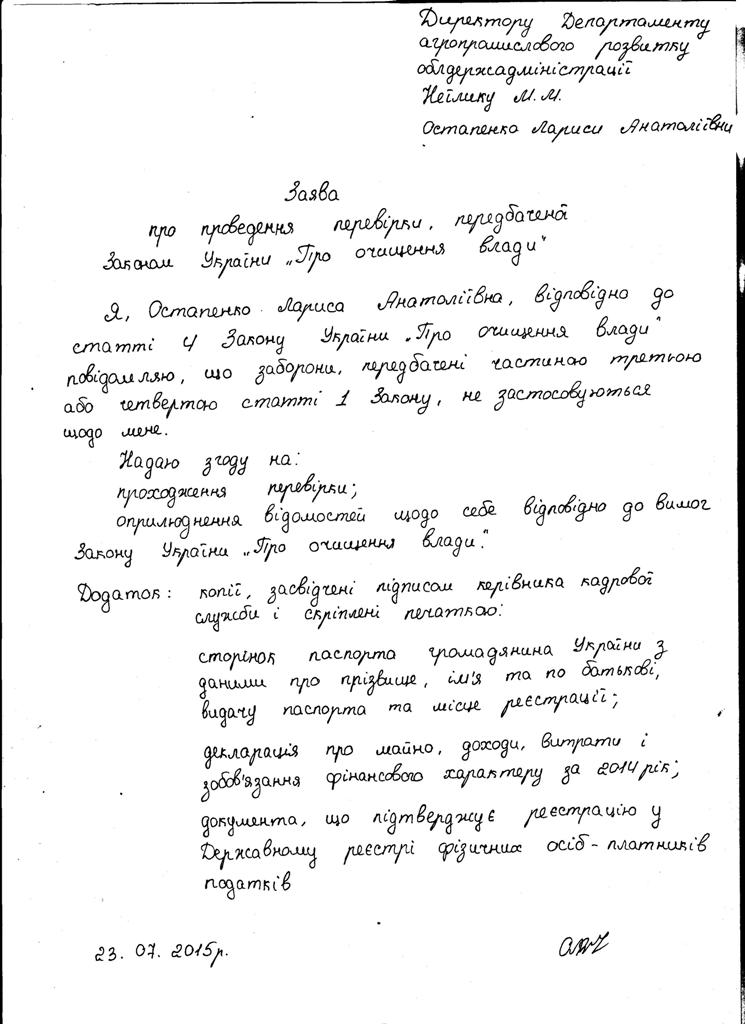 Директору Департаменту
агропромислового розвитку
облдержадміністрації
Неїлику М.М.
Остапенко Лариси Анатоліївни
Заява
про проведення перевірки, передбаченої
Законом України „Про очищення влади"
Я, Остапенко Лариса Анатоліївна, відповідно до
статті 4 Закону України „Про очищення влади"
повідомляю, що заборони, передбачені частиною третьою
або четвертою статті 1 Закону, не застосовуються
щодо мене.
Надаю згоду на:
проходження перевірки;
оприлюднення відомостей щодо себе відповідно до вимог
Закону України „Про очищення влади".
Додаток: копії, засвідчені підписом керівника кадрової
служби і скріплені печаткою:
сторінок паспорта громадянина України з
даними про прізвище, ім'я та по батькові,
видачу паспорта та місце реєстрації;
декларація про майно, доходи, витрати і
зобов'язання фінансового характеру за 2014 рік;
документа, що підтверджує реєстрацію у
Державному реєстрі фізичних осіб-платників
податків
23. 07. 2015р.